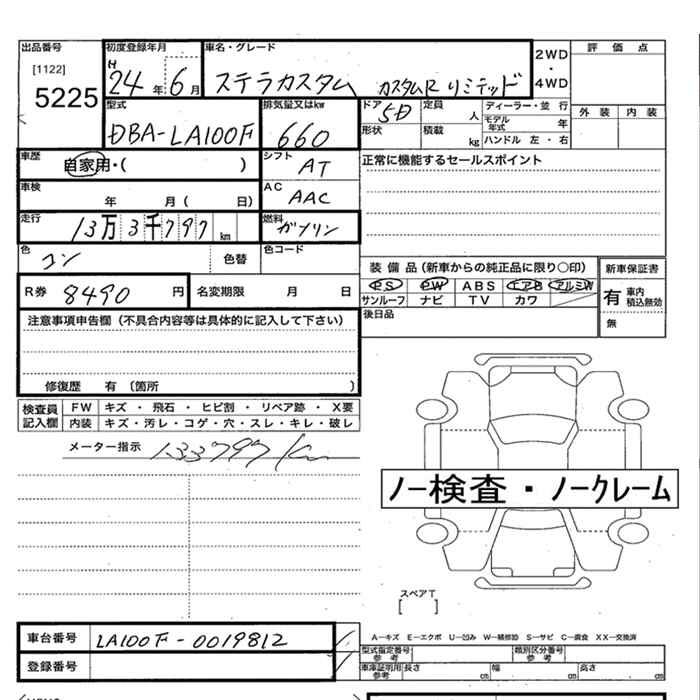 出品番号
[1122]
5225
初度登録年月
H
24 年 6 月
車名・グレード
ステラカスタム カスタムR リミテッド
2WD
・
4WD
評価点
外装 内装
型式
DBA-LA100F
排気量又はkw
660
ドア 5D
形状
定員 人
積載 kg
ディーラー・並行
モデル年式 年
ハンドル 左・右
車歴
自家用・( )
シフト
AT
正常に機能するセールスポイント
車検
年 月( 日)
AC
AAC
走行
13万3千797 km
燃料
ガソリン
色
コン
色替
色コード
R券 8490 円
名変期限 月 日
装備品(新車からの純正品に限り○印)
PS PW ABS エアB アルミW
サンルーフ ナビ TV カワ
後日品
新車保証書
有 車内積込無効
無
注意事項申告欄(不具合内容等は具体的に記入して下さい)
修復歴 有〔箇所 〕
検査員記入欄
FW キズ・飛石・ヒビ割・リペア跡・X要
内装 キズ・汚レ・コゲ・穴・スレ・キレ・破レ
メーター指示 133797km
ノー検査・ノークレーム
スペアT
[ ]
車台番号 LA100F-0019812
登録番号
A−キズ E−エクボ U−凹み W−補修跡 S−サビ C−腐食 XX−交換済
型式指定番号
参考
類別区分番号
参考
車庫証明用
参考
長さ cm 幅 cm 高さ cm